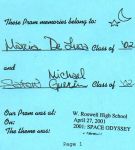 These Prom memories belong to:
Maria De Luca Class of '02
and Michael
Guerin Class of '02
Our Prom was at: W. Roswell High School
On: April 27, 2001
The theme was: 2001: SPACE ODYSSEY
Page 1